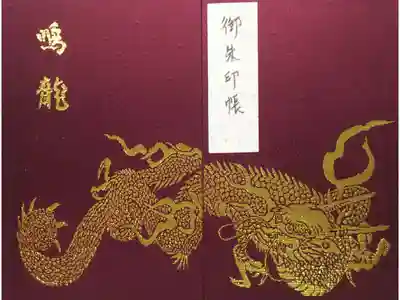 鳴龍
御朱印帳